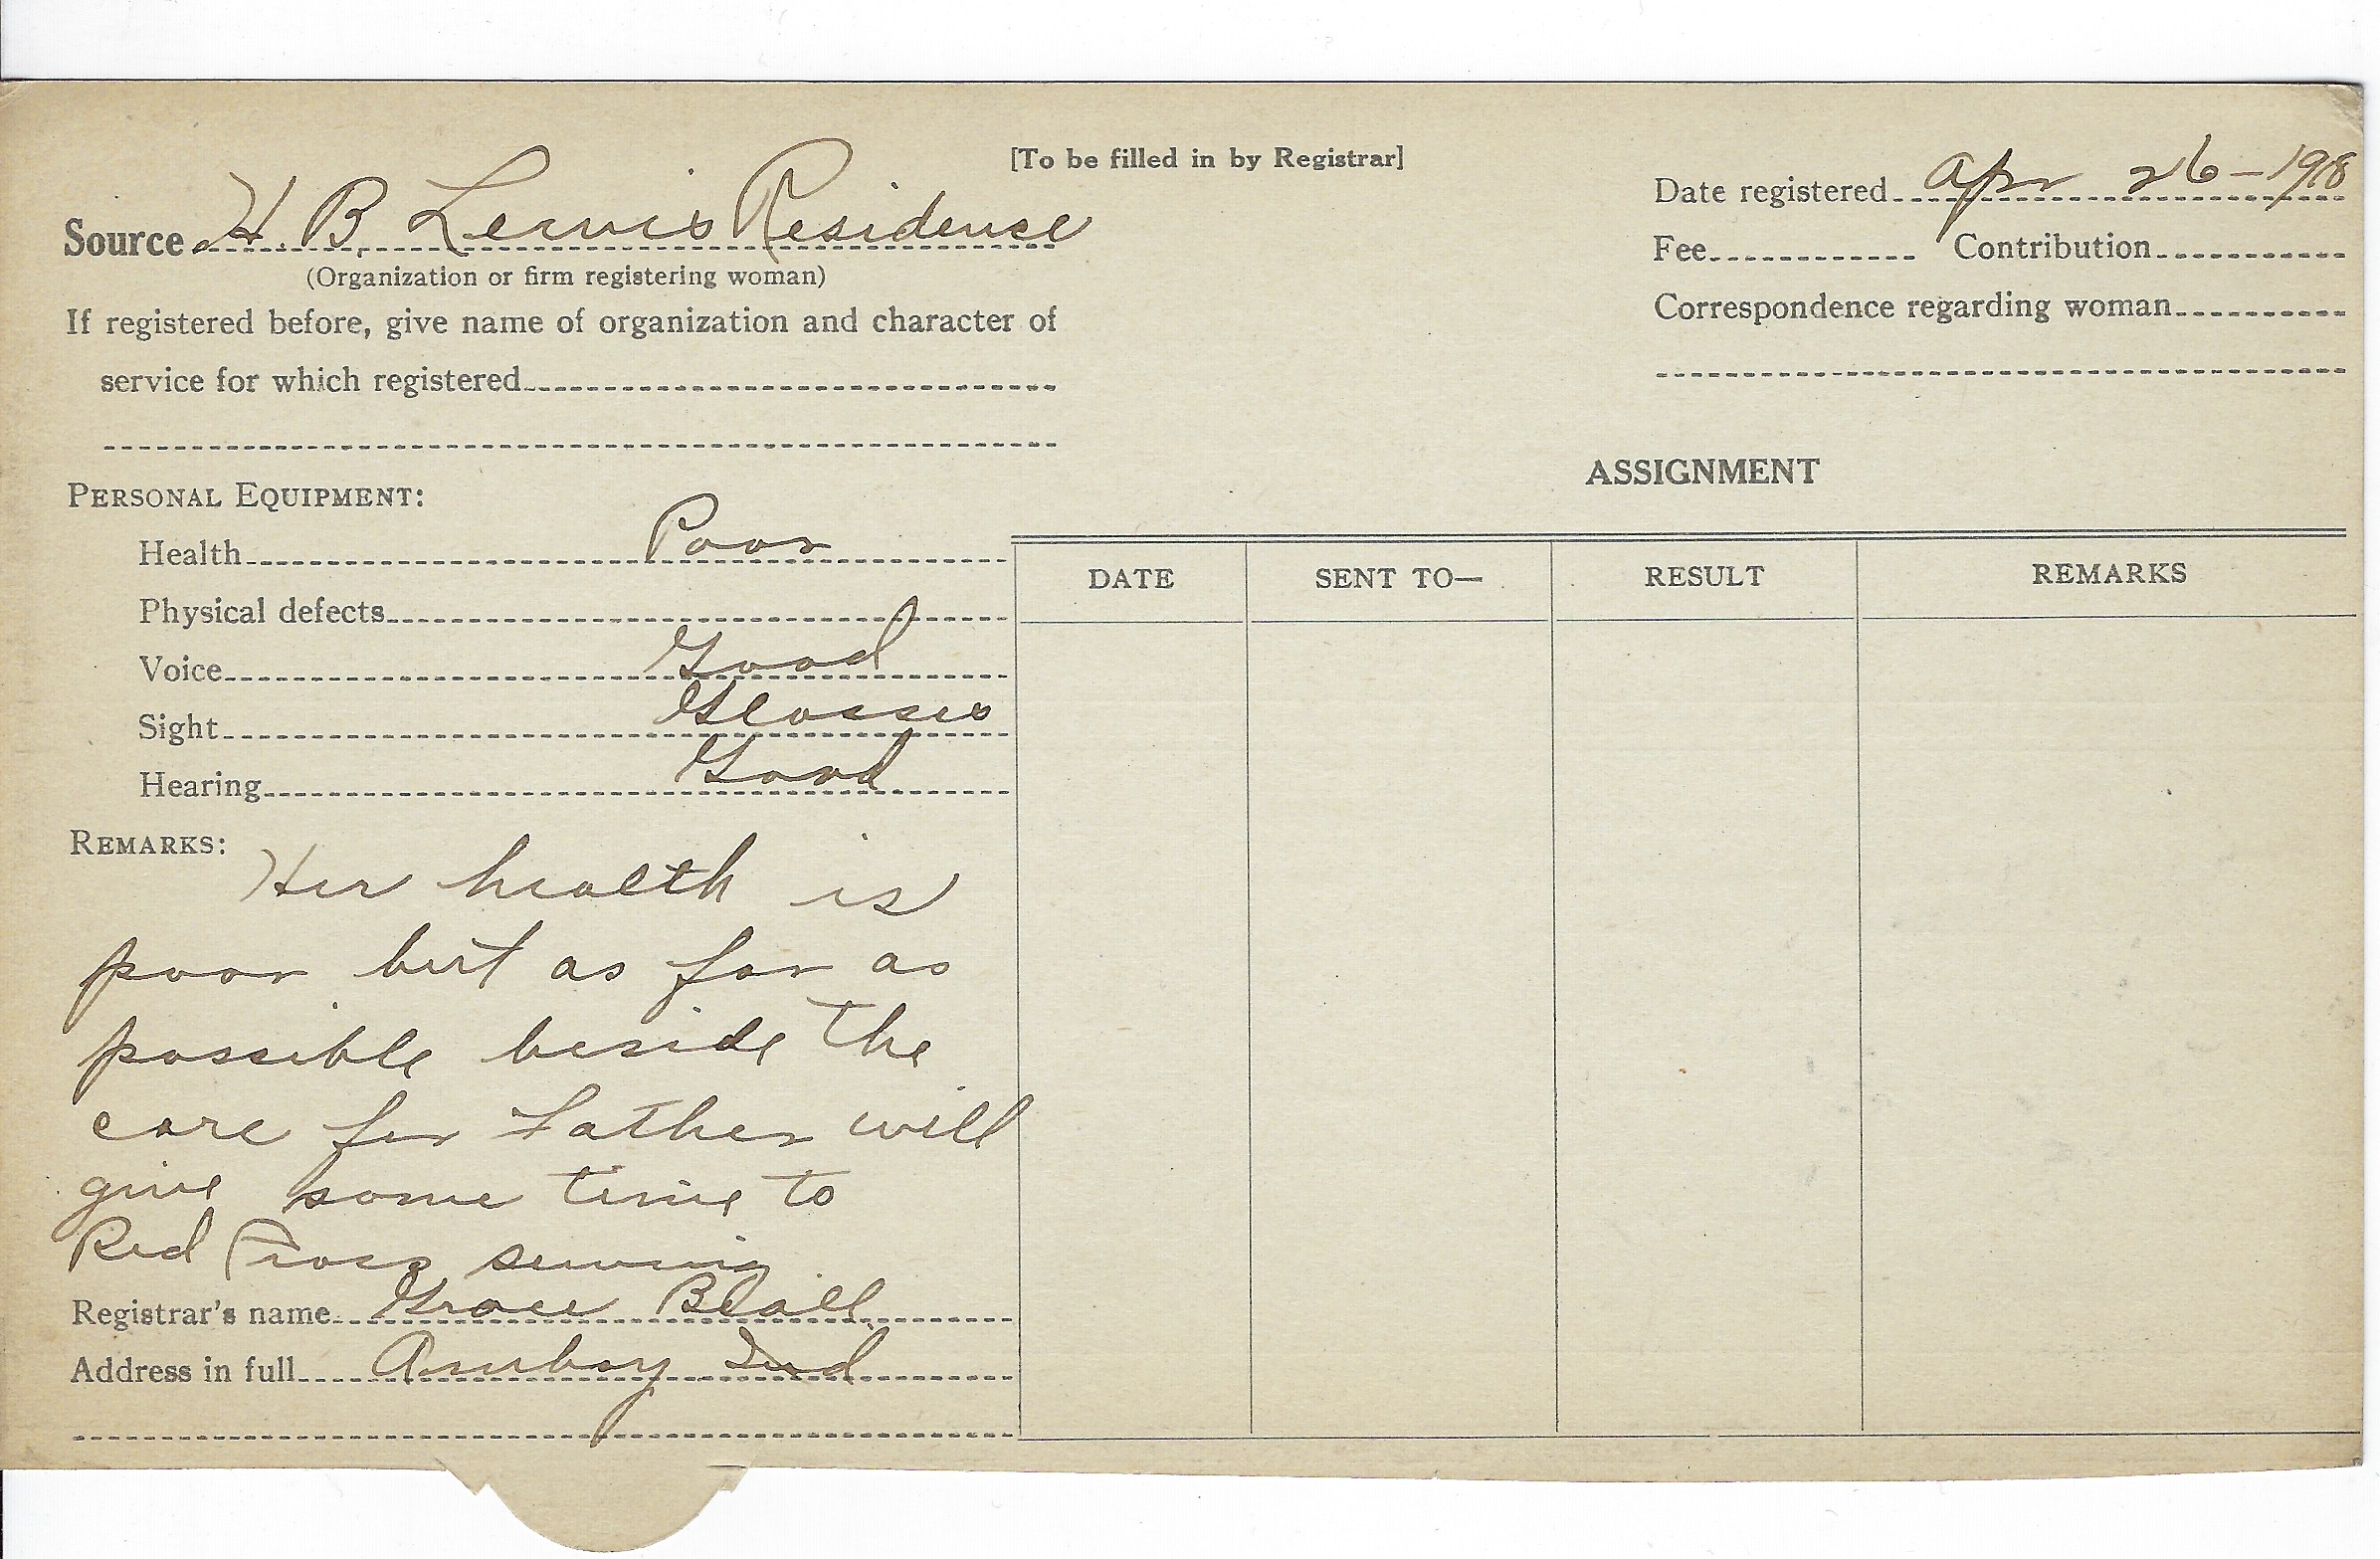 [To be filled in by Registrar]
Source H. B. Lewis Residence
(Organization or firm registering woman)
If registered before, give name of organization and character of
service for which registered
Date registered Apr 26-1918
Fee Contribution
Correspondence regarding woman
PERSONAL EQUIPMENT:
Health Poor
Physical defects
Voice Good
Sight Glasses
Hearing Good
REMARKS:
Her health is
poor but as far as
possible beside the
care for Father will
give some time to
Red Cross sewing
Registrar's name Grace Beall
Address in full Amboy Ind
ASSIGNMENT
DATE SENT TO— RESULT REMARKS